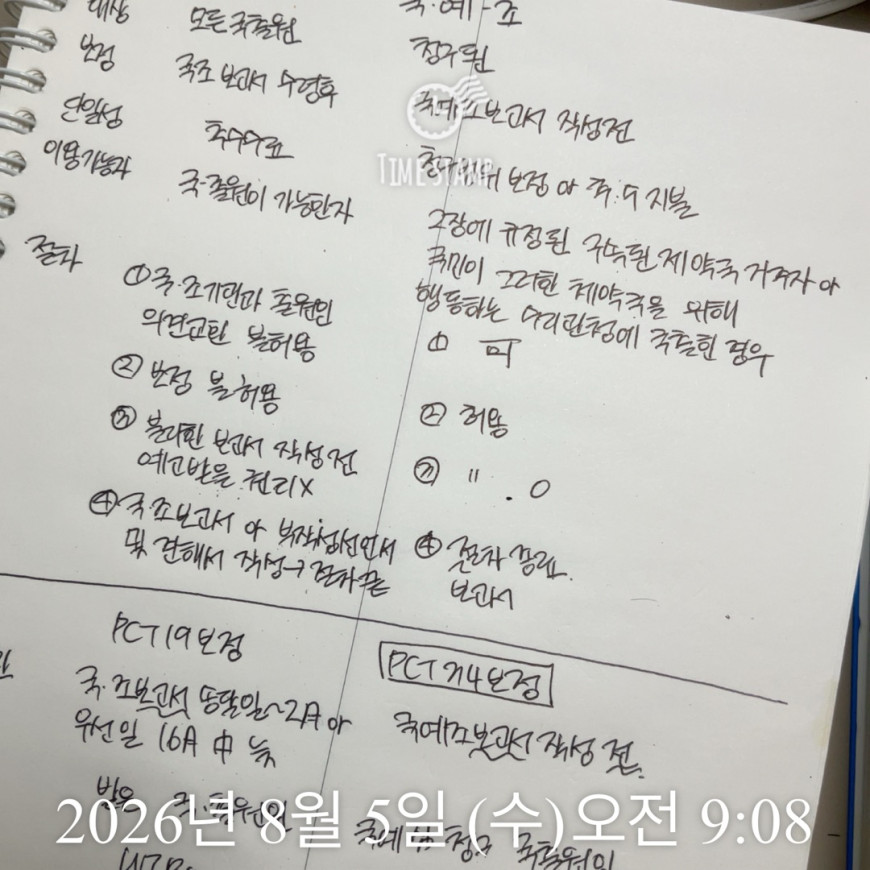 대상 모든 국출원 국·예·조
보정 국조 보고서 수령후 청구된
단일성 추수수료 국예조보고서 작성전
이용가능자 국·출원이 가능한자 청구범위 보정 or 추·수 지불
2장에 규정된 구속된 체약국 거주자 or
국민이 그러한 체약국을 위해
행동하는 수리관청에 국출한 경우
절차 ① 국·조기관과 출원인
의견교환 불허용 ① 可
② 보정 불허용 ② 허용
③ 불리한 보고서 작성전
예고받을 권리X ③ 〃 . O
④ 국·조보고서 or 부작성선언서
및 견해서 작성→절차 끝 ④ 절차 종료.
보고서
PCT 19 보정 PCT 34 보정
국·조보고서 송달일~2月 or
우선일 16月 中 늦 국예조보고서 작성 전.
받은 국·출원인
국예 청구 국출원인
TIMESTAMP
2026년 8월 5일 (수)오전 9:08